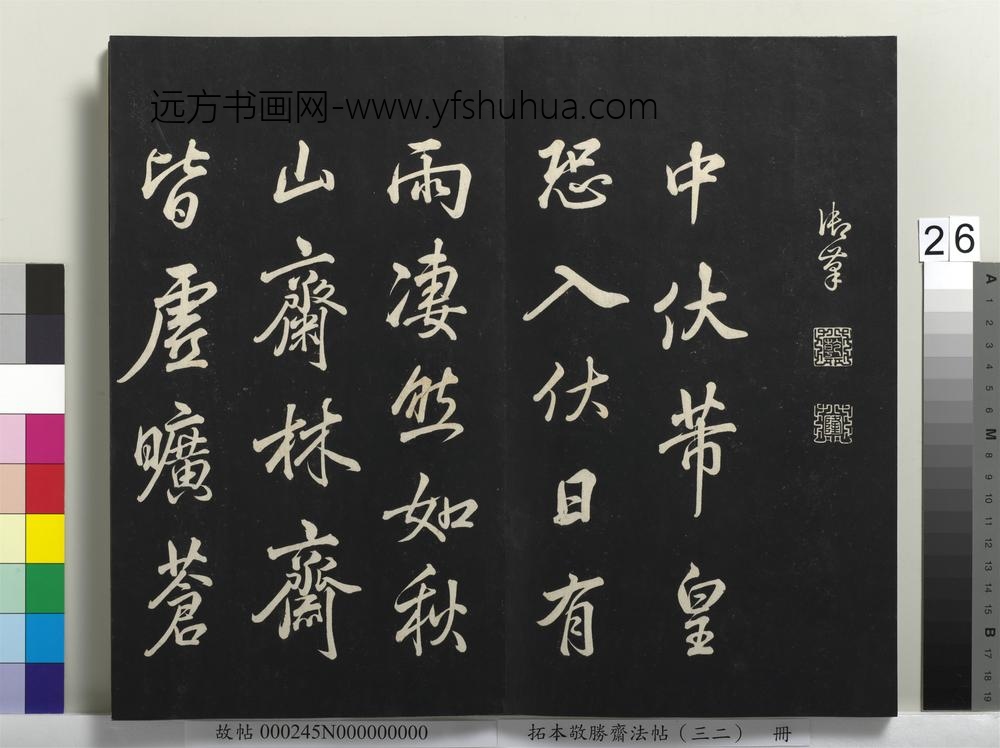 远方书画网-www.yfshuhua.com
御筆
乾
隆
中伏芾皇
恐入伏日有
雨淒然如秋
山齋林齋
皆虛曠蒼
26
A
1
2
3
4
5
6
M
8
9
10
11
12
13
14
15
B
17
18
19
故帖 000245N000000000
拓本敬勝齋法帖（三二） 冊